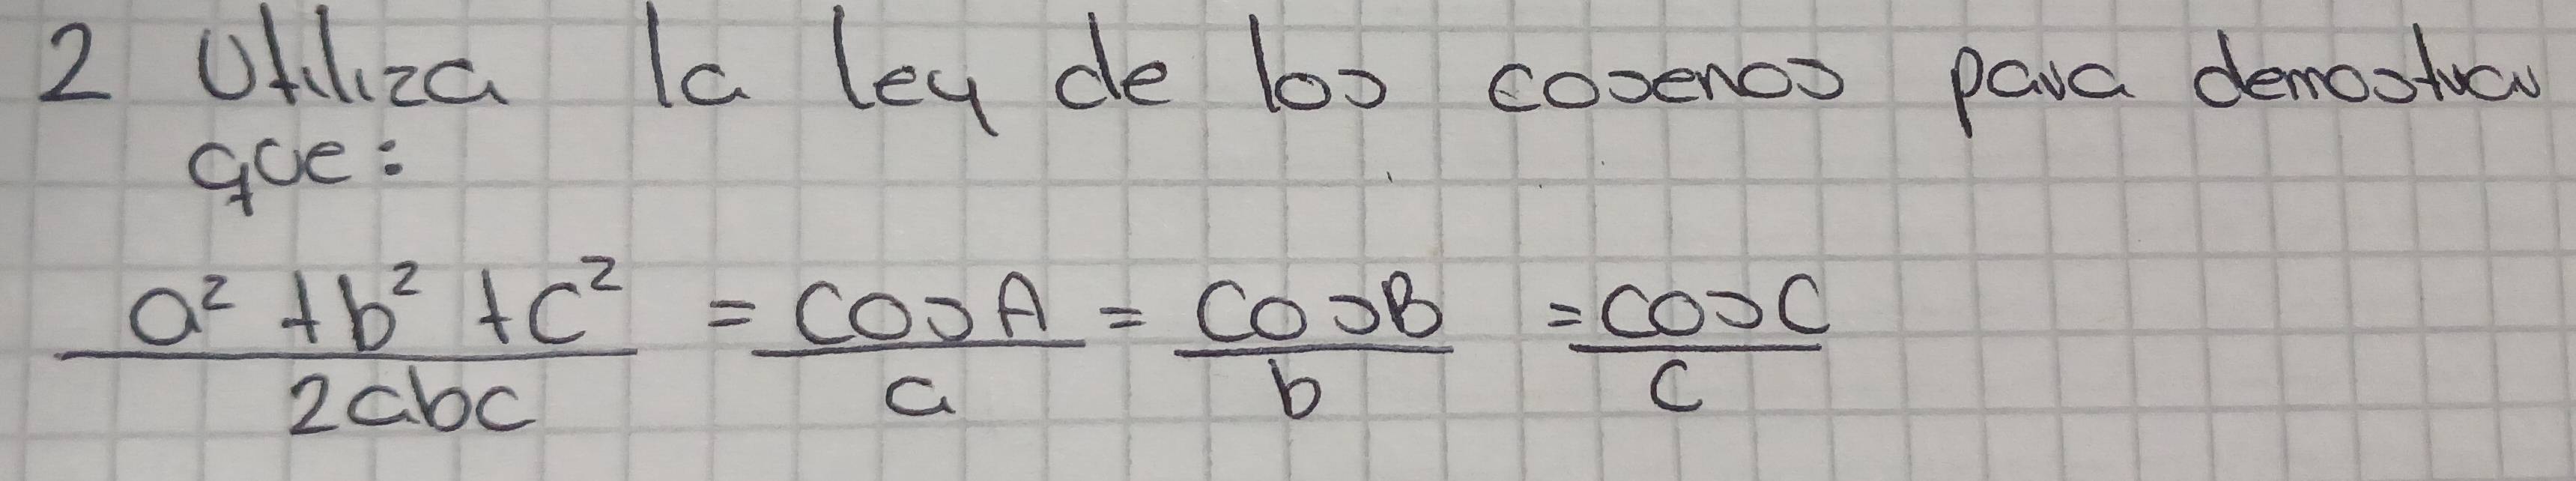 2 Utiliza la ley de los cosenos para demostrar
que:
a² + b² + c² / 2abc = cos A / a = cos B / b = cos C / c